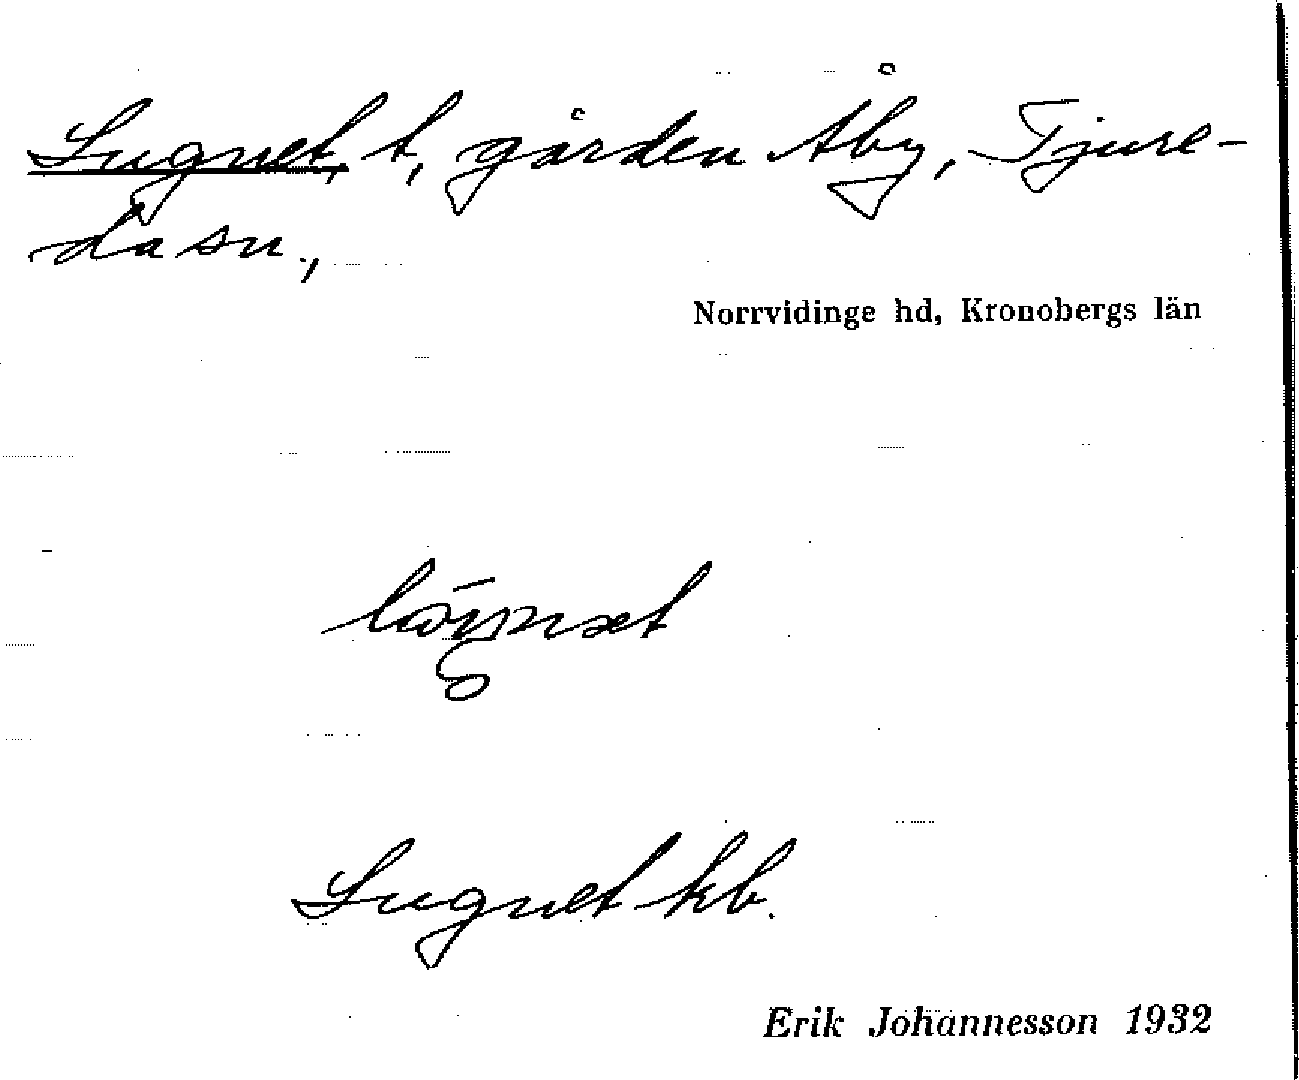 Lugnet, t, gården Åby, Tjure-
da sn.,
Norrvidinge hd, Kronobergs län
Lugnet kb.
Erik Johannesson 1932